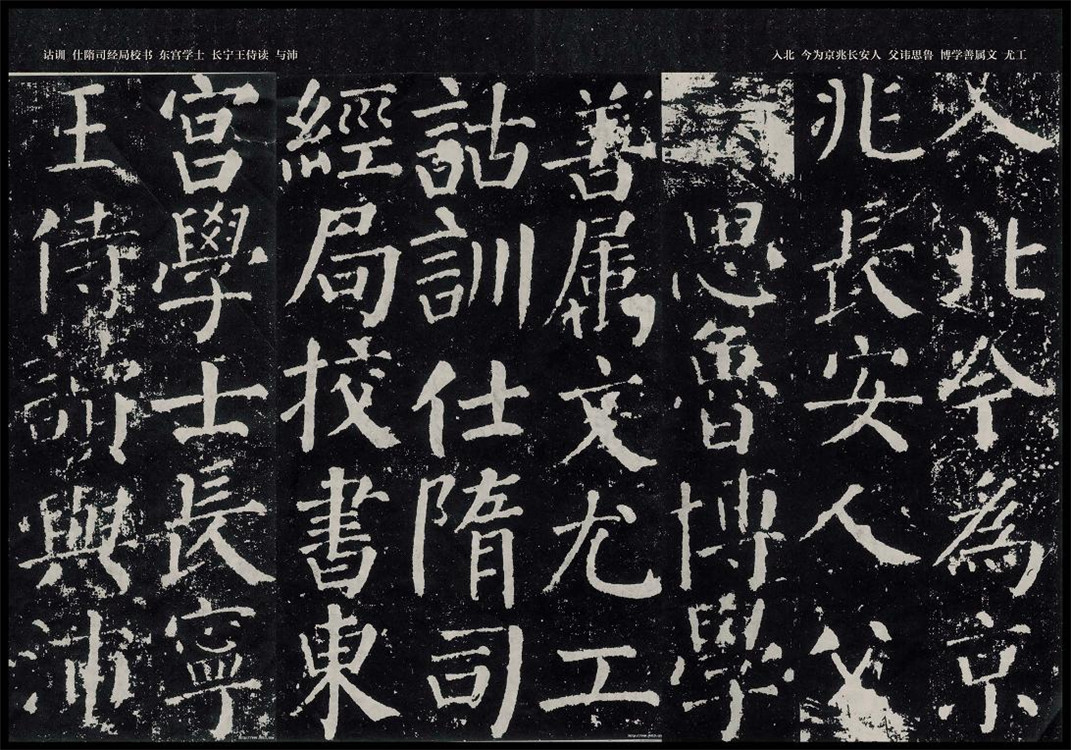 入北 今为京兆长安人 父讳思鲁 博学善属文 尤工
诂训 仕隋司经局校书 东宫学士 长宁王侍读 与沛
入北今為京
兆長安人父
思魯博學
善属文尤工
詁訓仕隋司
經局挍書東
宮學士長寧
王侍讀與沛